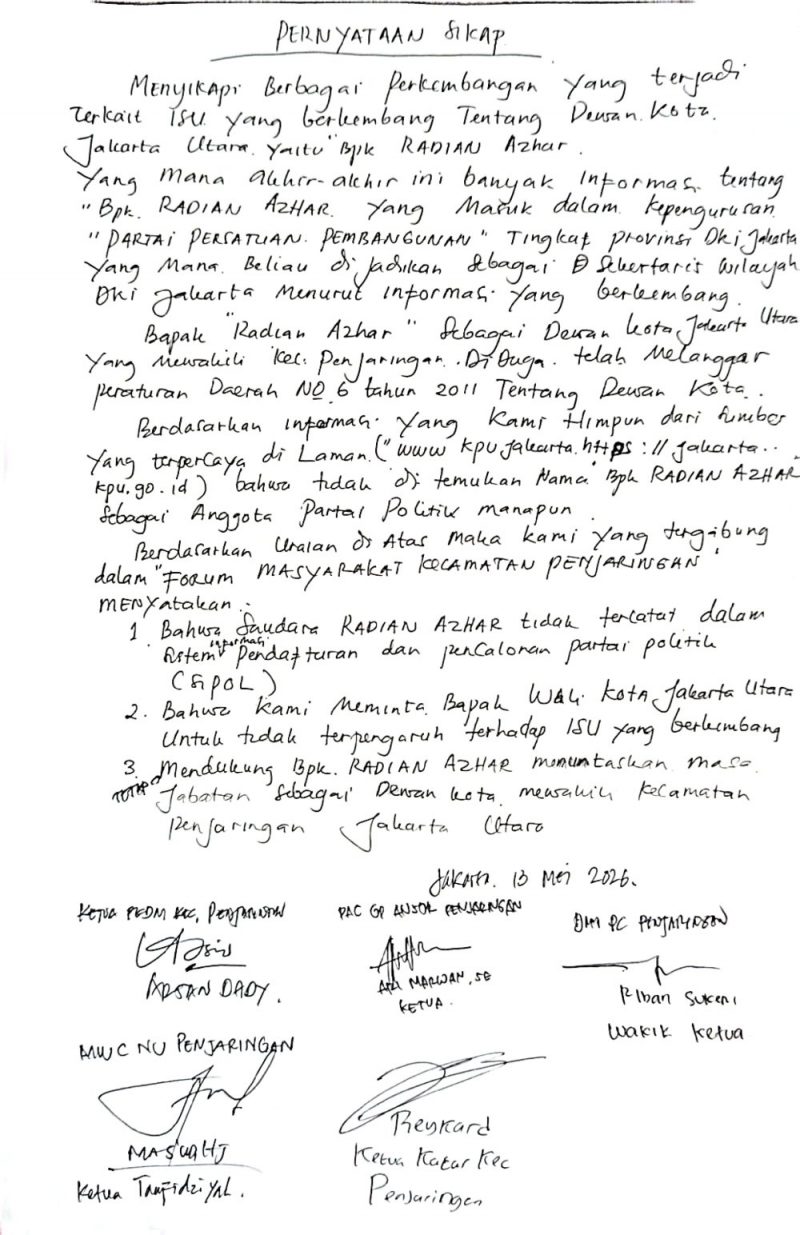 PERNYATAAN SIKAP
Menyikapi Berbagai Perkembangan yang terjadi
Terkait ISU yang berkembang Tentang Dewan Kota
Jakarta Utara yaitu "Bpk RADIAN Azhar.
Yang mana akhir-akhir ini banyak Informasi tentang
"Bpk. RADIAN AZHAR yang Masuk dalam kepengurusan
"PARTAI PERSATUAN PEMBANGUNAN" Tingkat provinsi Dki Jakarta
Yang Mana Beliau di jadikan sebagai Sekertaris wilayah
DKI Jakarta Menurut informasi yang berkembang.
Bapak "Radian Azhar" Sebagai Dewan kota Jakarta Utara
Yang Mewakili Kec. Penjaringan. Di Duga telah Melanggar
peraturan Daerah NO 6 tahun 2011 Tentang Dewan Kota.
Berdasarkan informasi yang kami Himpun dari sumber
yang terpercaya di Laman ("www kpu jakarta. https://jakarta..
kpu.go.id) bahwa tidak di temukan Nama Bpk RADIAN AZHAR
Sebagai Anggota Partai Politik manapun.
Berdasarkan Uraian di Atas maka kami yang tergibung
dalam "FORUM MASYARAKAT KECAMATAN PENJARINGAN"
MENYATAKAN :
1. Bahwa Saudara RADIAN AZHAR tidak tercatat dalam
Sistem informasi Pendafturan dan pencalonan partai politik
(SIPOL)
2. Bahwa kami Meminta Bapak Wali kota Jakarta Utara
Untuk tidak terpengaruh terhadap ISU yang berkembang
3. Mendukung Bpk. RADIAN AZHAR menuntaskan masa
Jabatan sebagai Dewan kota mewakili Kecamatan
penjaringan Jakarta Utara
Jakarta. 13 Mei 2026.
KETUA PEDM KEC, PENJARINGAN
PAC GP ANSOR PENJARINGAN
DMI PC PENJARINGAN
ARSAN DADY.
MARWAN, SE
KETUA.
Riban Sukeri
Wakik Ketua
MWC NU PENJARINGAN
MASWAHJ
Ketua Tanfidziyal.
Reykard
Ketua Katar Kec
Penjaringan